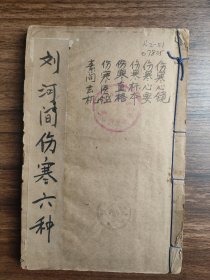 伤寒心镜
伤寒心要
伤寒标本
伤寒直格
伤寒医鉴
素问玄机
刘河间伤寒六种